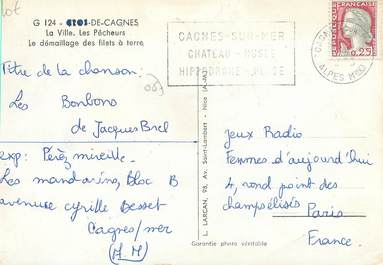 lot
G 124 - CROS-DE-CAGNES
La Ville. Les Pêcheurs
Le démaillage des filets à terre
CAGNES-SUR-MER
CHATEAU - MUSEE
HIPPODROME - PLAGE
ALPES Mmes
0,25
Titre de la chanson:
Les Bonbons
de Jacques Brel
exp: Pérez mireille.
Les mandarins, Bloc B
avenue cyrille Besset
Cagnes/mer
(A M)
L. LARGAN, 98, Av. Saint-Lambert - Nice (A.-M.)
Jeux Radio
Femmes d'aujourd'hui
4, rond point des
champs élisés
Paris
France.
Garantie photo véritable